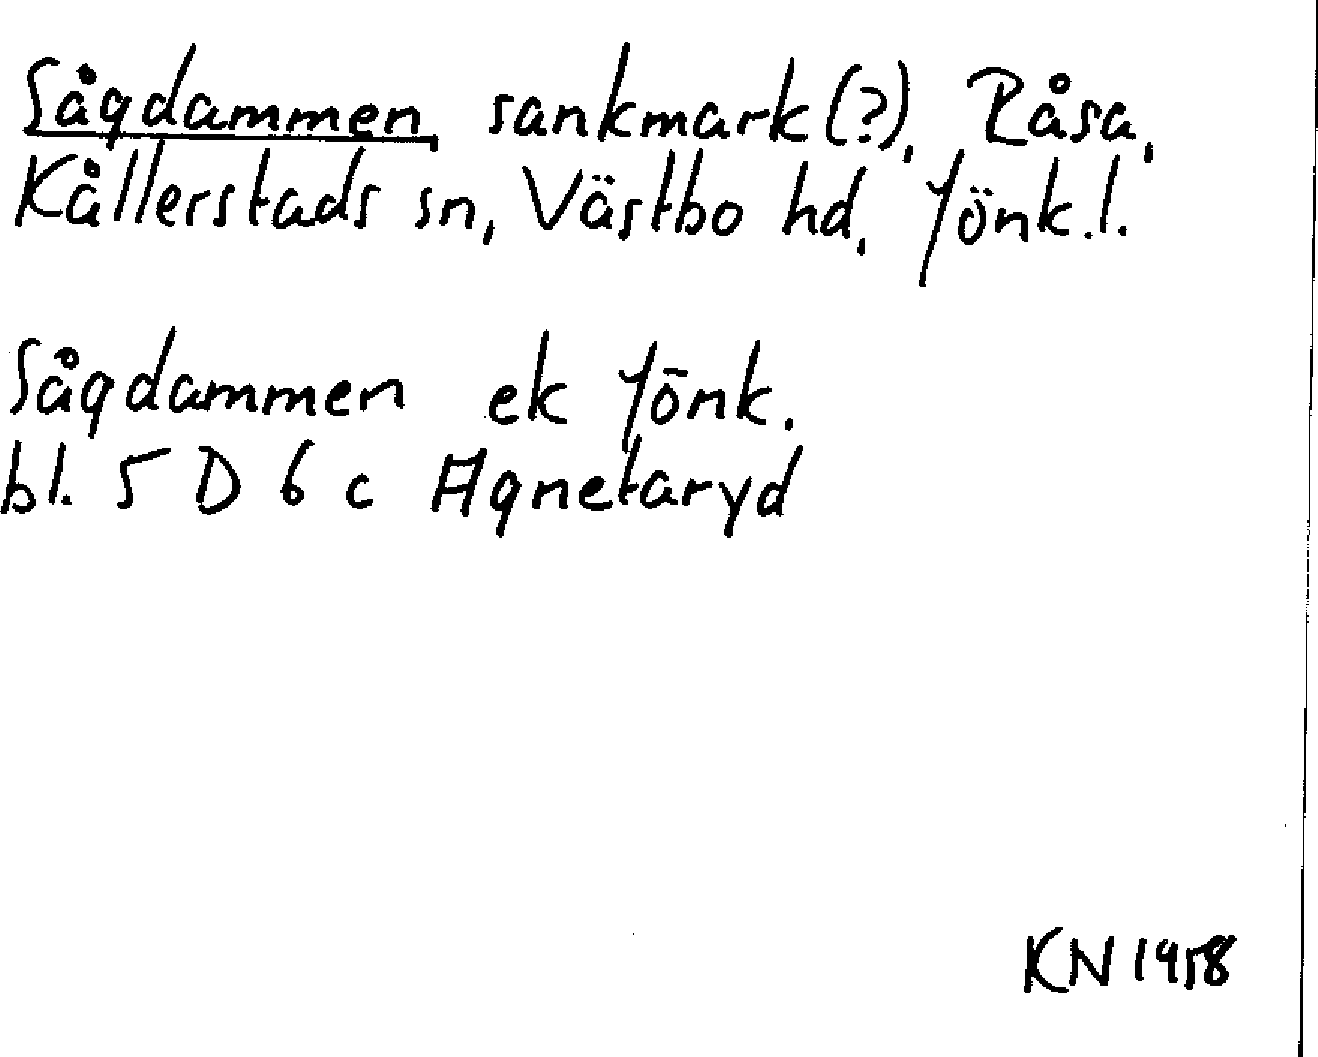 Sågdammen, sankmark (?), Råsa,
Kållerstads sn, Västbo hd, Jönk.l.
Sågdammen ek Jönk.
bl. 5 D 6 c Agnetaryd
KN 1958